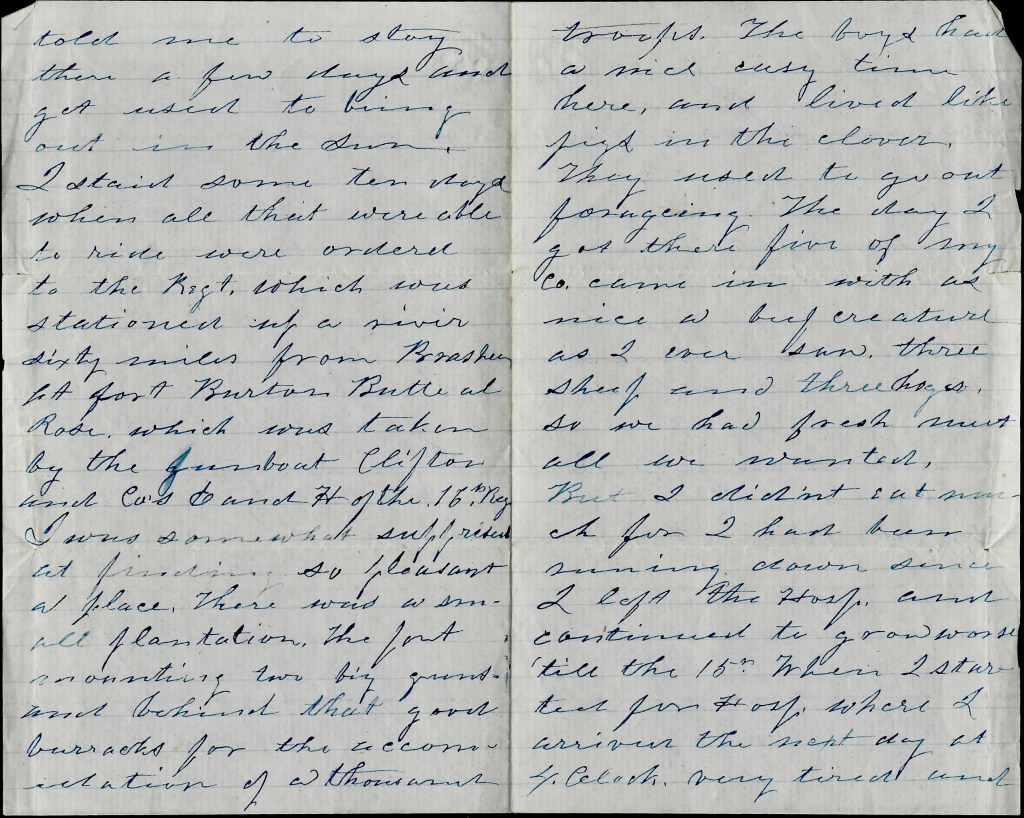 told me to stay
there a few days and
get used to being
out in the sun.
I staid some ten days
when all that were able
to ride were ordered
to the Regt. which was
stationed up a river
sixty miles from Brashear
At fort Burton Butte al
Rose. which was taken
by the gunboat Clifton
and Co's and H of the 16th Reg
I was somewhat supprised
at finding so pleasant
a place. There was a sm-
all plantation. The fort
mounting two big guns-
and behind that good
barracks for the accom-
idation of a thousand
troops. The boys had
a nice easy time
here, and lived like
pigs in the clover.
They used to go out
forageing. The day I
got there five of my
Co. came in with as
nice a beef creature
as I ever saw. three
sheep and three hogs.
so we had fresh meat
all we wanted.
But I did'nt eat mu-
ch for I had been
runing down since
I left the Hosp. and
continued to grow worse
'till the 15th When I star-
ted for Hosp. where I
arrived the next day at
4. Clock. very tired and